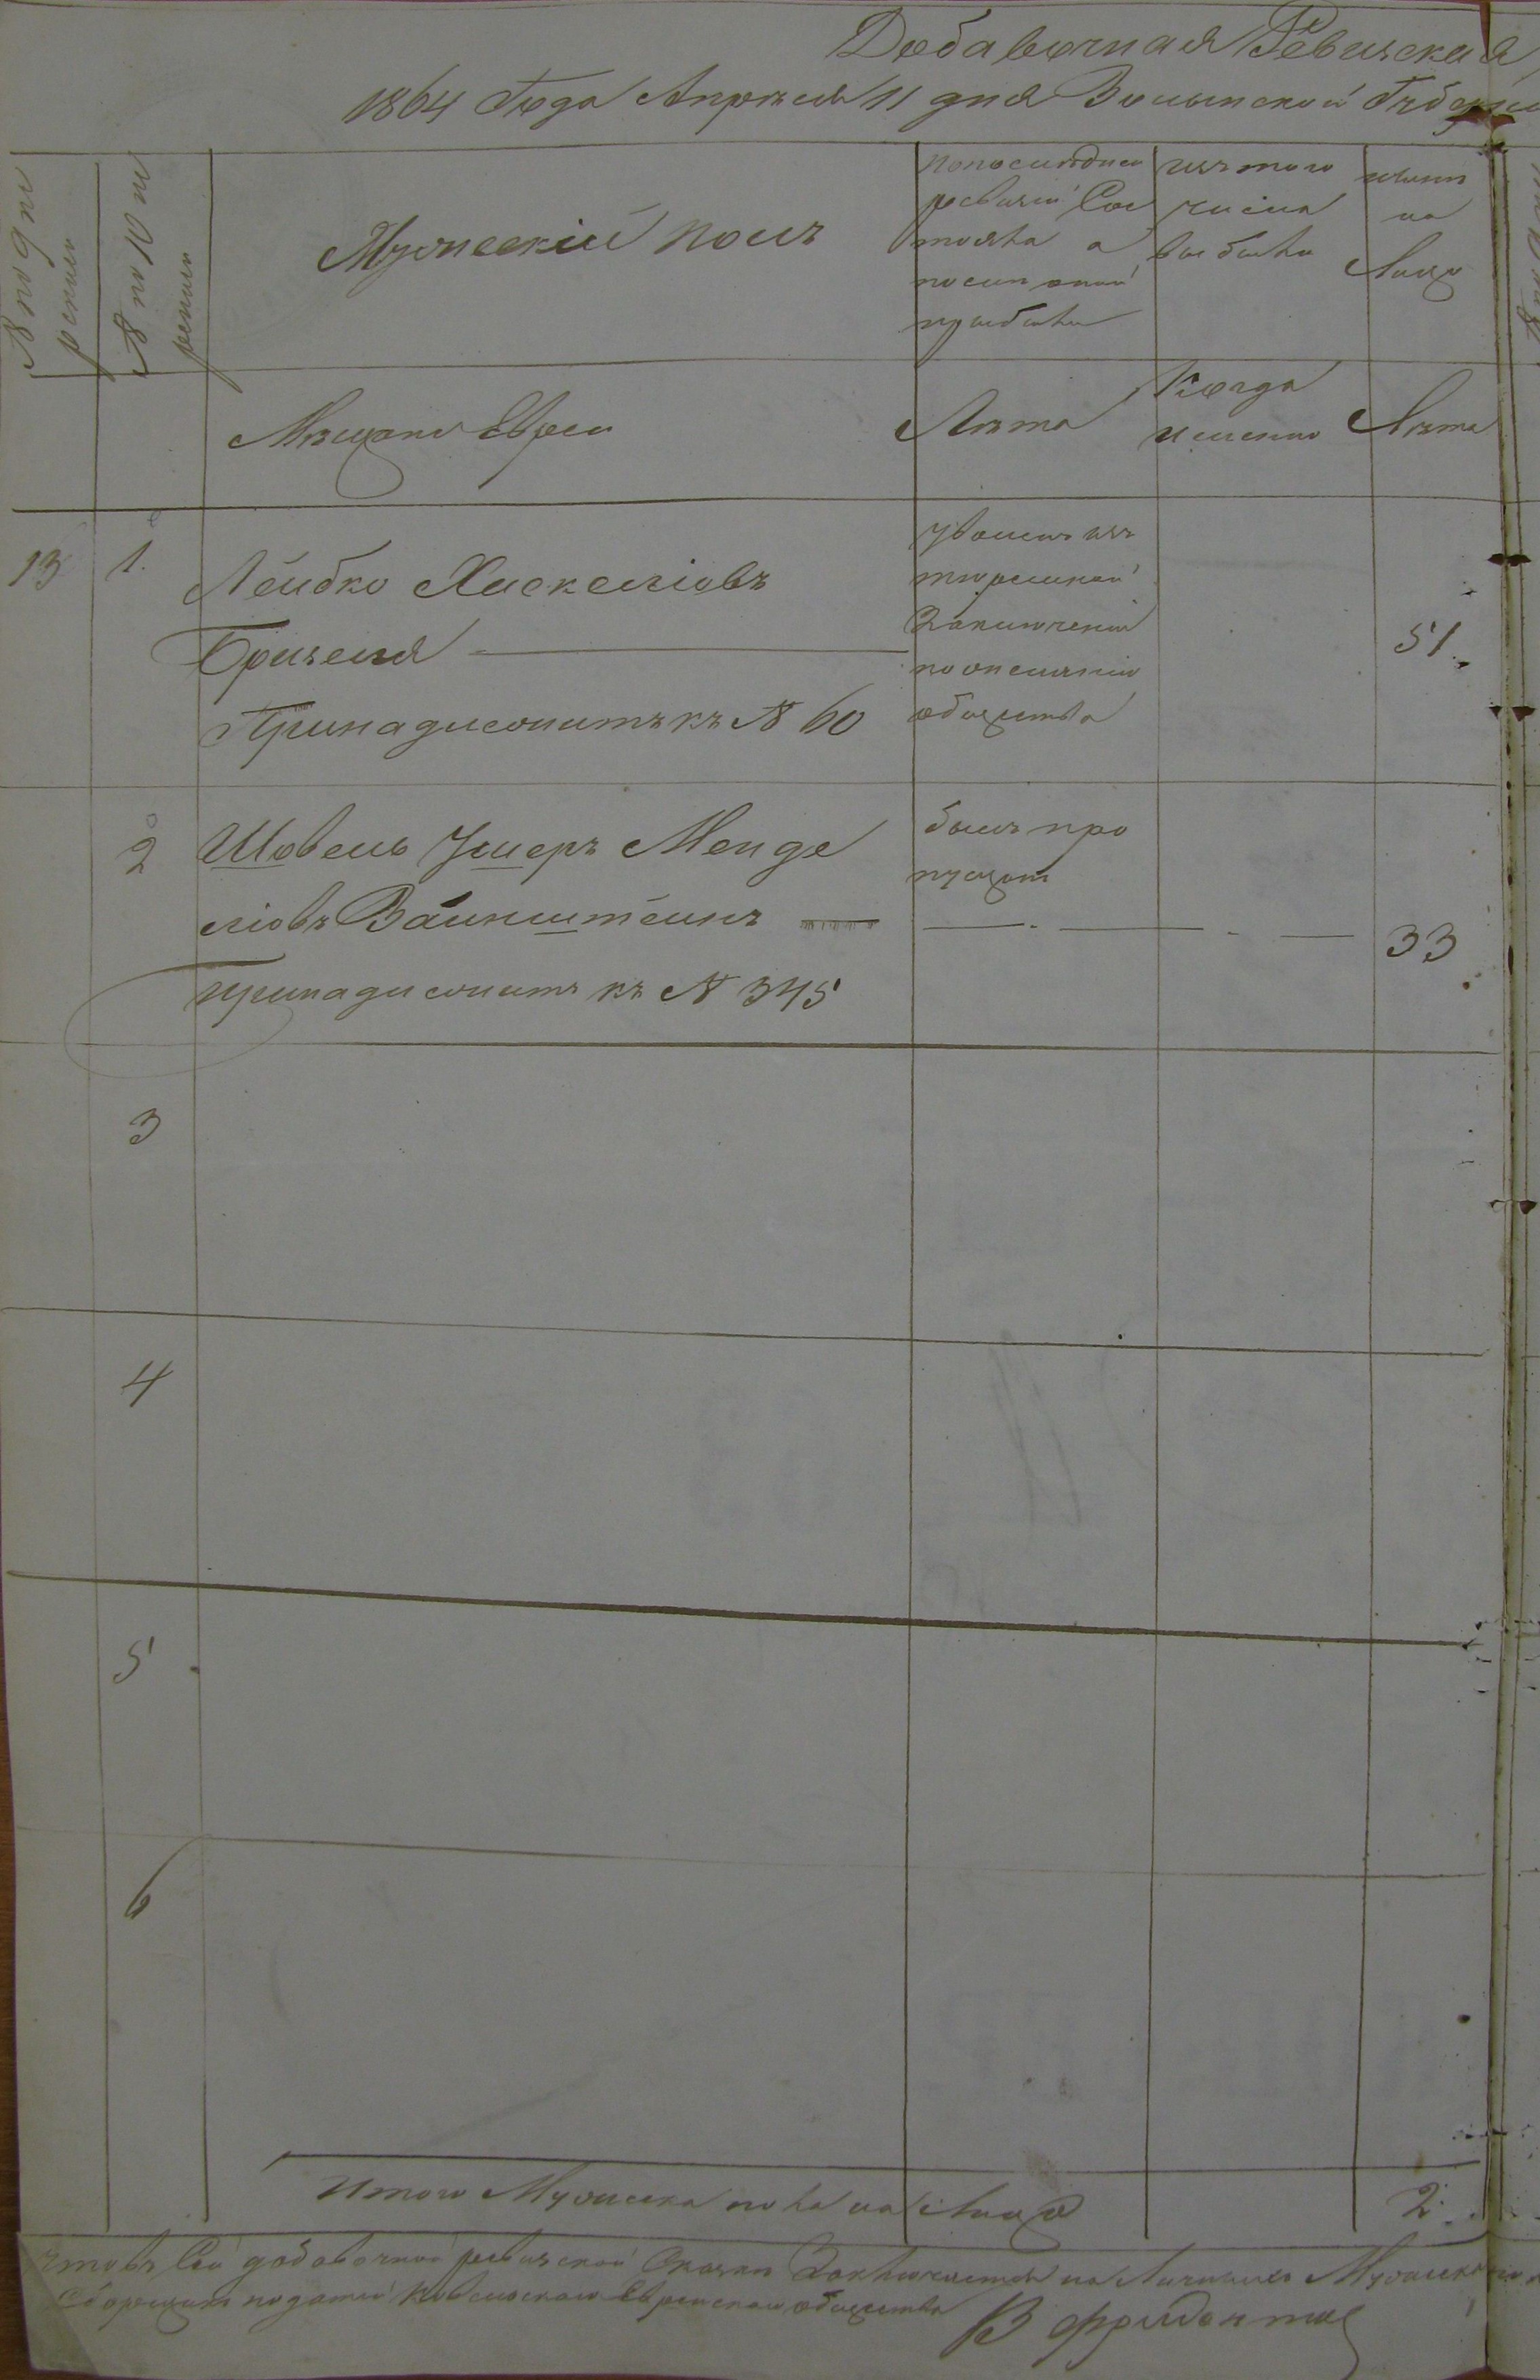 Добавочная Ревизская
1864 Года Апреля 11 дня Волынской Губерни
№ по 9 й
ревизи
№ по 10 й
ревизи
Мужескій полъ
по последней
ревизіи Сос
тояло а
после оной
прибыло
изъ того
числа
выбыло
ныне
на
Лицо
Мещане Евреи
Лета
Когда
именно
Лета
13
1.
Лейбко Хаскеліовъ
Бризеля
Принадлежитъ къ № 60
уволенъ изъ
тюремной
Заключенія
общества
51
2
Шовель Ушеръ Менде
ліовъ Вайнштейнъ
принадлежитъ къ № 345
былъ про
пущен
33
3
4
5
6
Итого Мужеска пола на Лицо
2
Что въ Сей добавочной ревизской Сказки Заключается на Личныхъ Мужеска
Сборщикъ податей Ковельскаго Еврейскаго общества
В